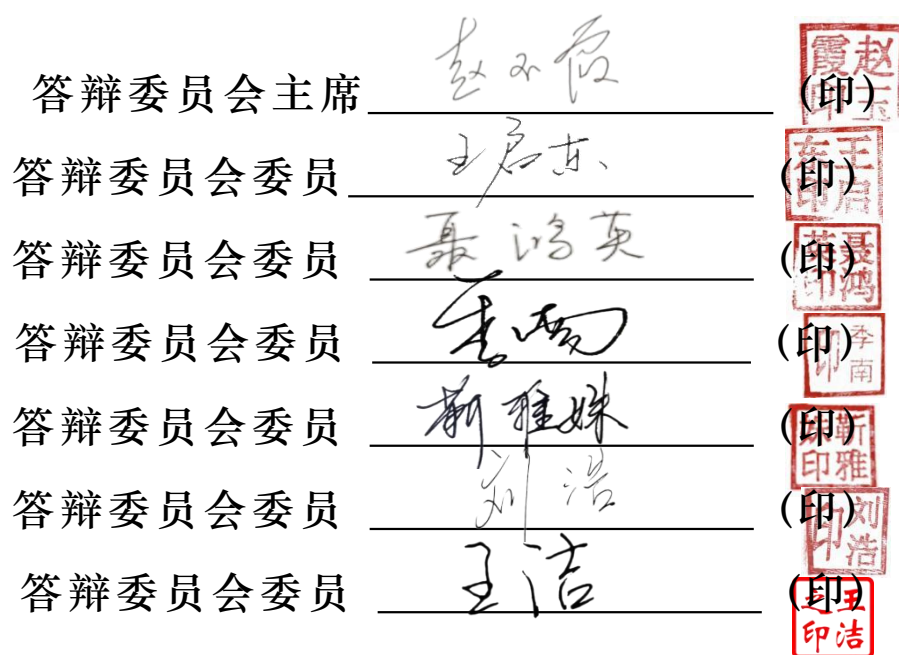 答辩委员会主席 赵玉霞 (印) 赵玉霞印
答辩委员会委员 王启东 (印) 王启东印
答辩委员会委员 聂鸿英 (印) 聂鸿英印
答辩委员会委员 李南 (印) 李南印
答辩委员会委员 靳雅姝 (印) 靳雅姝印
答辩委员会委员 刘浩 (印) 刘浩印
答辩委员会委员 王洁 (印) 王洁之印